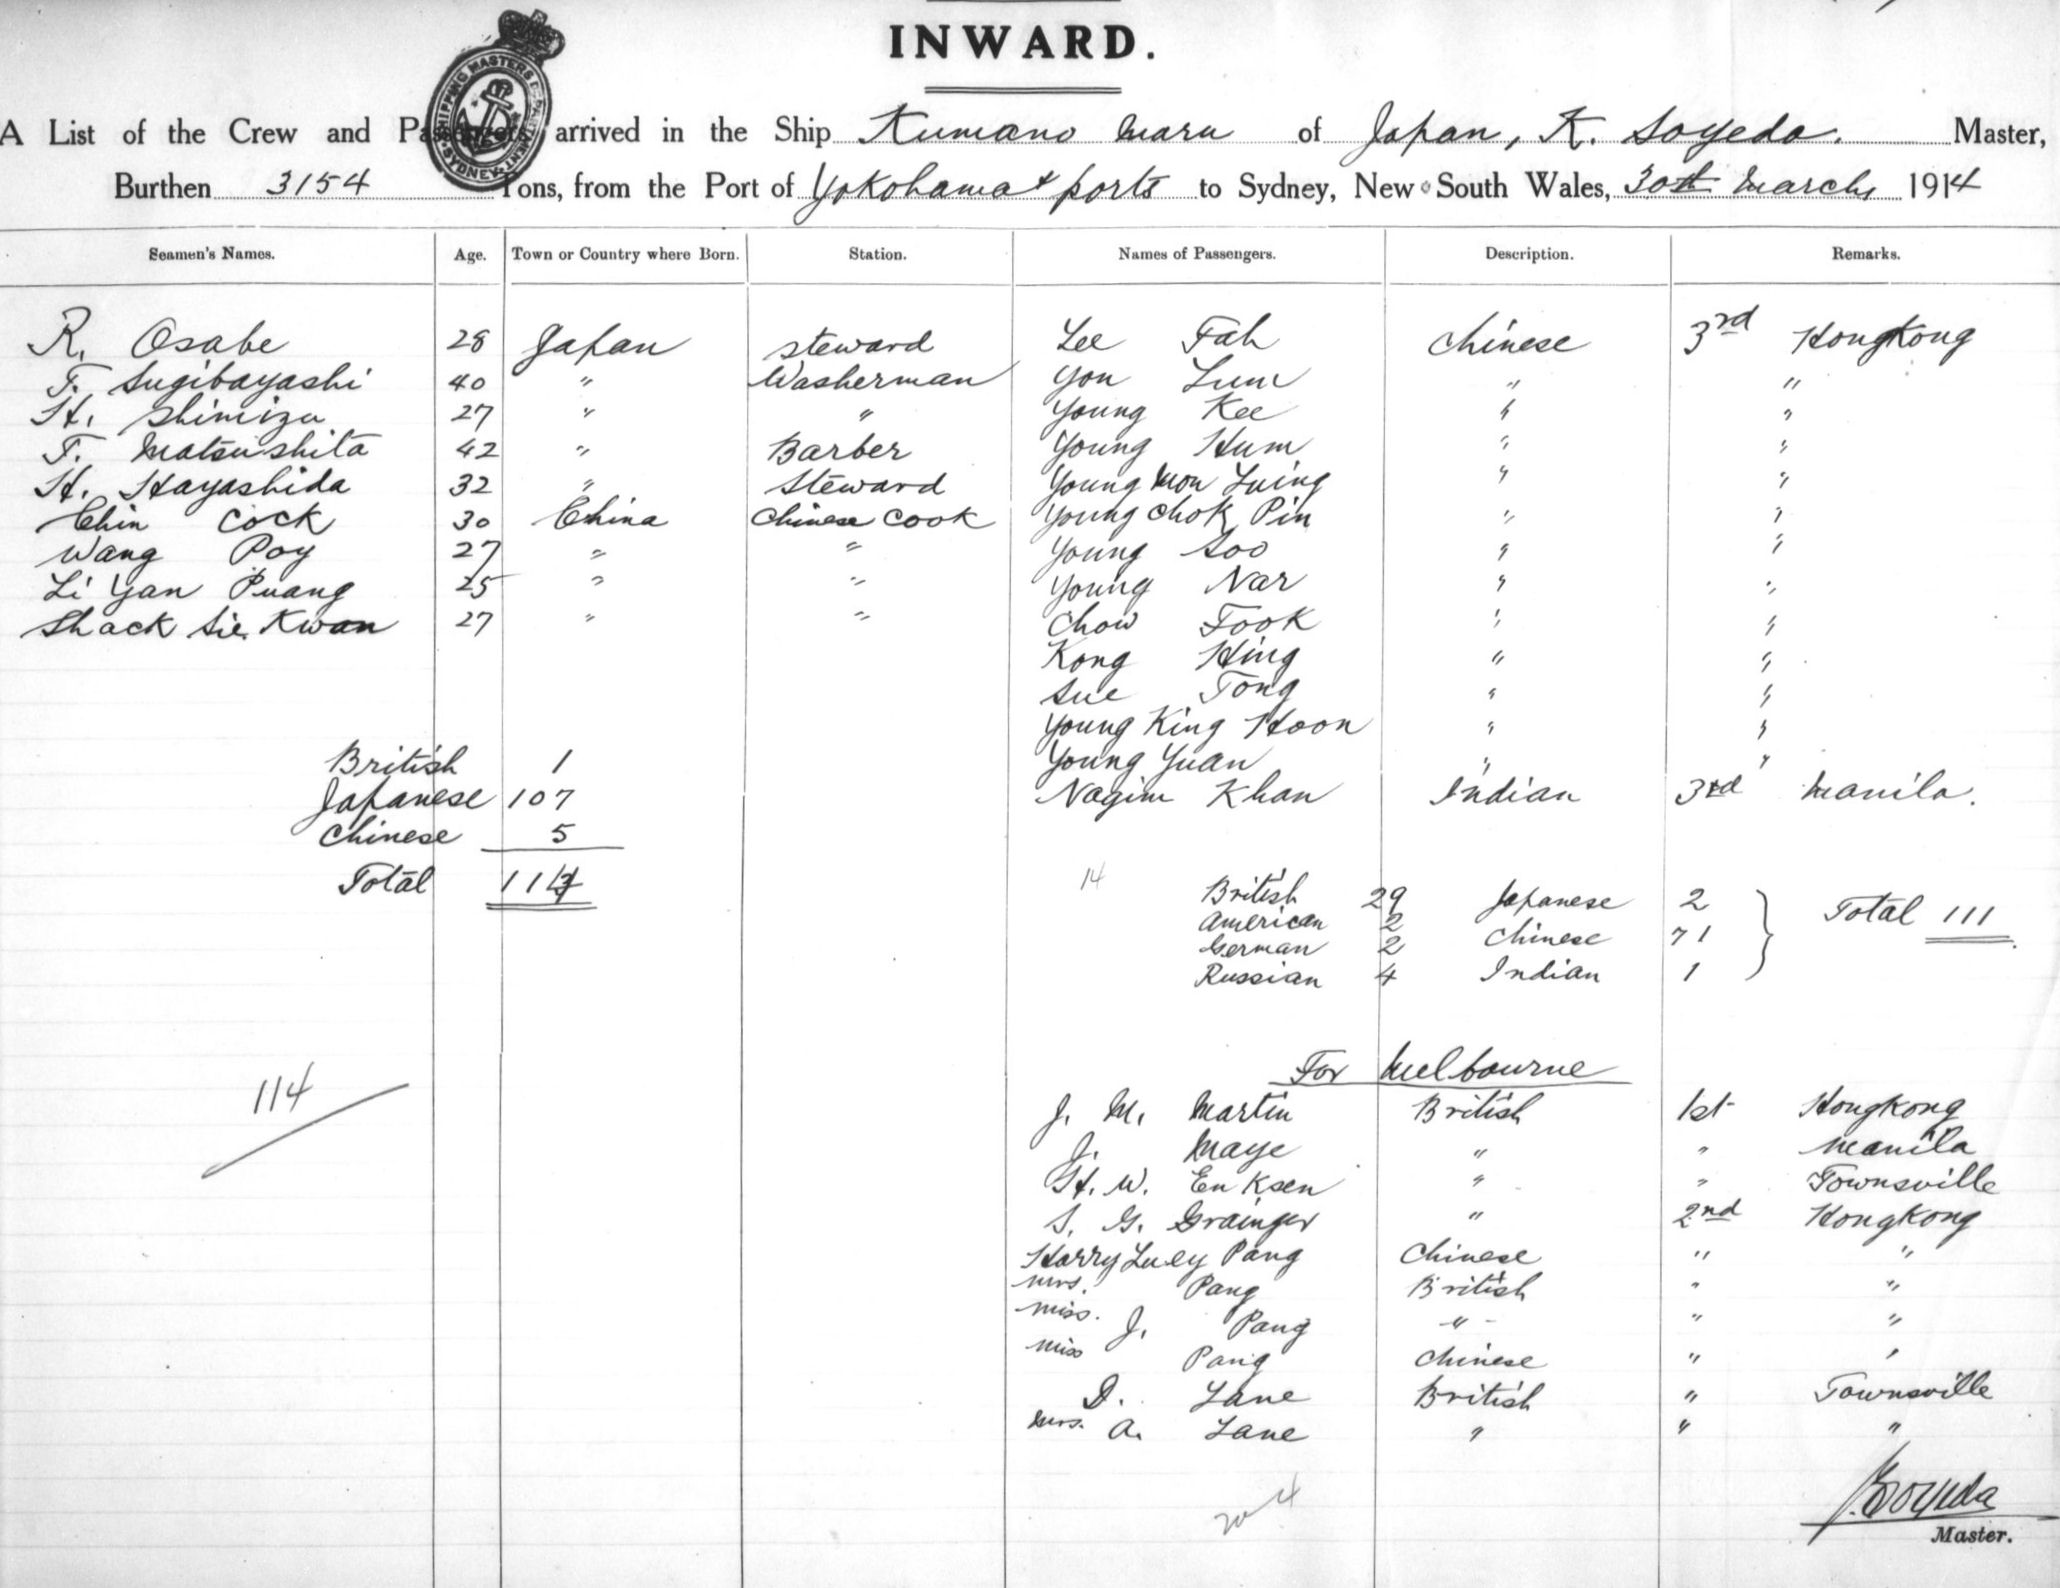 INWARD.
SHIPPING MASTERS DEPARTMENT SYDNEY
A List of the Crew and Passengers arrived in the Ship Kumano Maru of Japan, K. Soyeda. Master,
Burthen 3154 Tons, from the Port of Yokohama & ports to Sydney, New South Wales, 30th March, 1914
Seamen's Names. Age. Town or Country where Born. Station. Names of Passengers. Description. Remarks.
R. Osabe 28 Japan Steward Lee Fah Chinese 3rd Hongkong
T. Sugibayashi 40 " Washerman You Lum " "
H. Shimizu 27 " " Young Kee " "
T. Matsushita 42 " Barber Young Hum " "
H. Hayashida 32 " Steward Young Mon Luing " "
Chin Cock 30 China Chinese Cook Young Chok Pin " "
Wang Poy 27 " " Young Soo " "
Li Yan Puang 25 " " Young Nar " "
Shack Sie Kwan 27 " " Chow Fook " "
Kong Hing " "
Sue Tong " "
Young King Hoon " "
British 1 Young Yuan " "
Japanese 107 Nagim Khan Indian 3rd Manila.
Chinese 5
Total 114 14 British 29 Japanese 2 Total 111
American 2 Chinese 71
German 2
Russian 4 Indian 1
For Melbourne
114 J. M. Martin British 1st Hongkong
J. Maye " " Manila
H. W. Enksen " " Townsville
S. G. Grainger " 2nd Hongkong
Harry Luey Pang Chinese " "
Mrs. Pang British " "
Miss. J. Pang " " "
Miss Pang Chinese " "
D. Lane British " Townsville
Mrs. A. Lane " " "
K. Soyeda
Master.